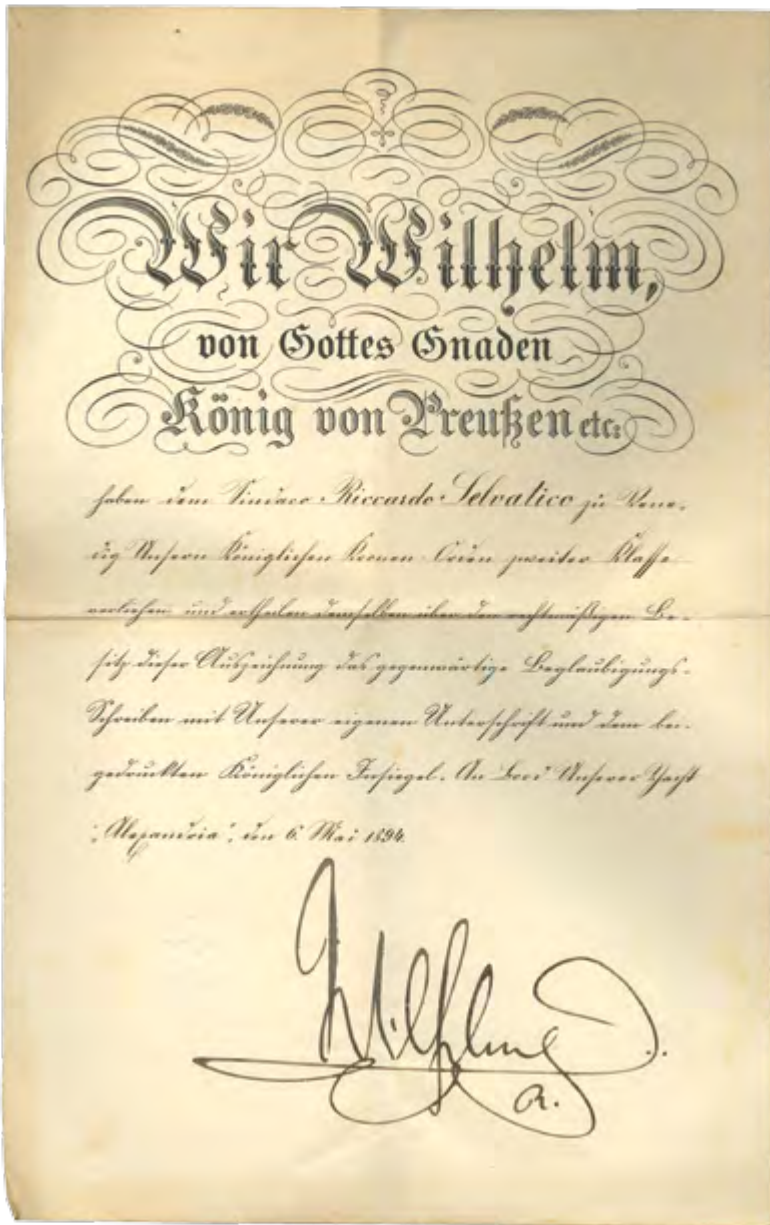 Wir Wilhelm,
von Gottes Gnaden
König von Preußen etc:
haben dem Sindaco Riccardo Selvatico zu Vene-
dig Unsern Königlichen Kronen-Orden zweiter Klasse
verliehen und ertheilen demselben über den rechtmäßigen Be-
sitz dieser Auszeichnung das gegenwärtige Beglaubigungs-
Schreiben mit Unserer eigenen Unterschrift und dem bei-
gedruckten Königlichen Insiegel. An Bord Unserer Yacht
„Alexandria“, den 6. Mai 1894.
Wilhelm
R.